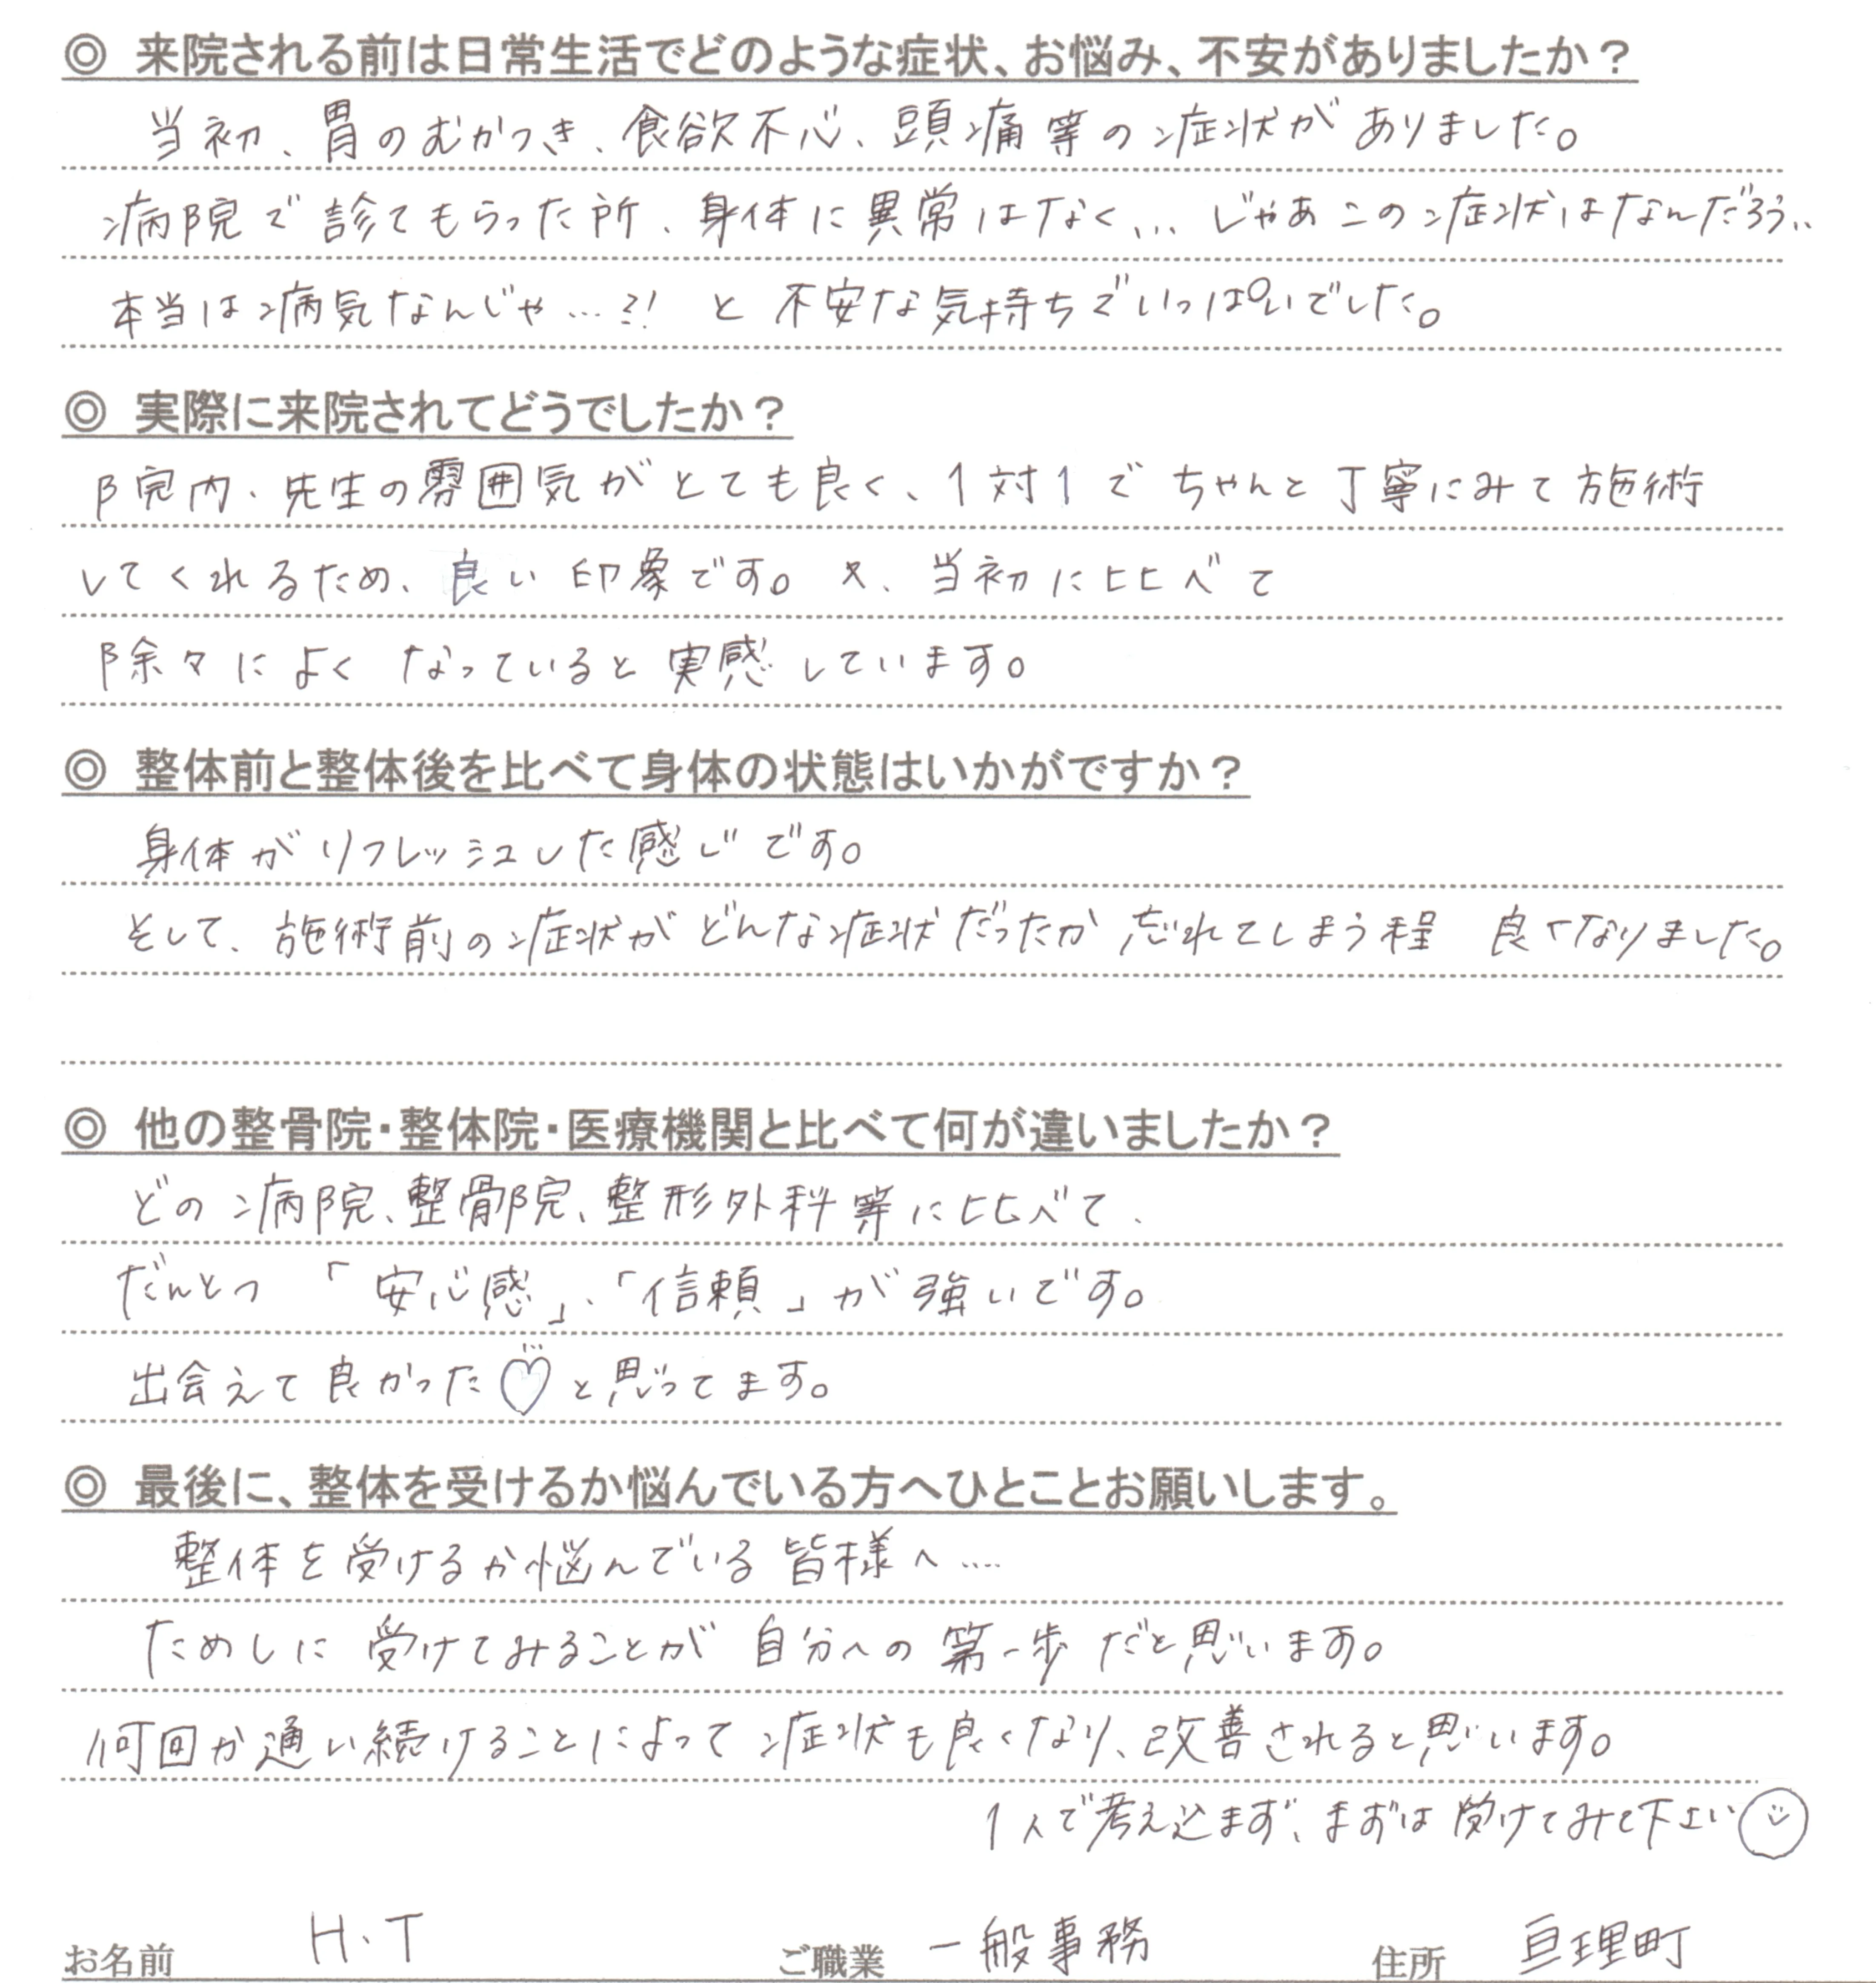 ◎ 来院される前は日常生活でどのような症状、お悩み、不安がありましたか？
当初、胃のむかつき、食欲不心、頭痛等の症状がありました。
病院で診てもらった所、身体に異常はなく… じゃあこの症状はなんだろう..
本当は病気なんじゃ…?! と不安な気持ちでいっぱいでした。
◎ 実際に来院されてどうでしたか？
院内・先生の雰囲気がとても良く、1対1でちゃんと丁寧にみて施術
してくれるため、良い印象です。又、当初に比べて
除々によくなっていると実感しています。
◎ 整体前と整体後を比べて身体の状態はいかがですか？
身体がリフレッシュした感じです。
そして、施術前の症状がどんな症状だったか忘れてしまう程 良くなりました。
◎ 他の整骨院・整体院・医療機関と比べて何が違いましたか？
どの病院、整骨院、整形外科等に比べて、
だんとつ「安心感」、「信頼」が強いです。
出会えて良かった♡と思ってます。
◎ 最後に、整体を受けるか悩んでいる方へひとことお願いします。
整体を受けるか悩んでいる皆様へ....
ためしに受けてみることが自分への第一歩だと思います。
何回か通い続けることによって症状も良くなり、改善されると思います。
1人で考え込まず、まずは受けてみて下さい☺
お名前 H.T ご職業 一般事務 住所 亘理町